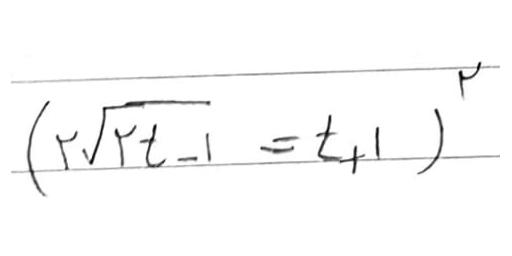 (۲√۲t-۱ = t+۱)^۲